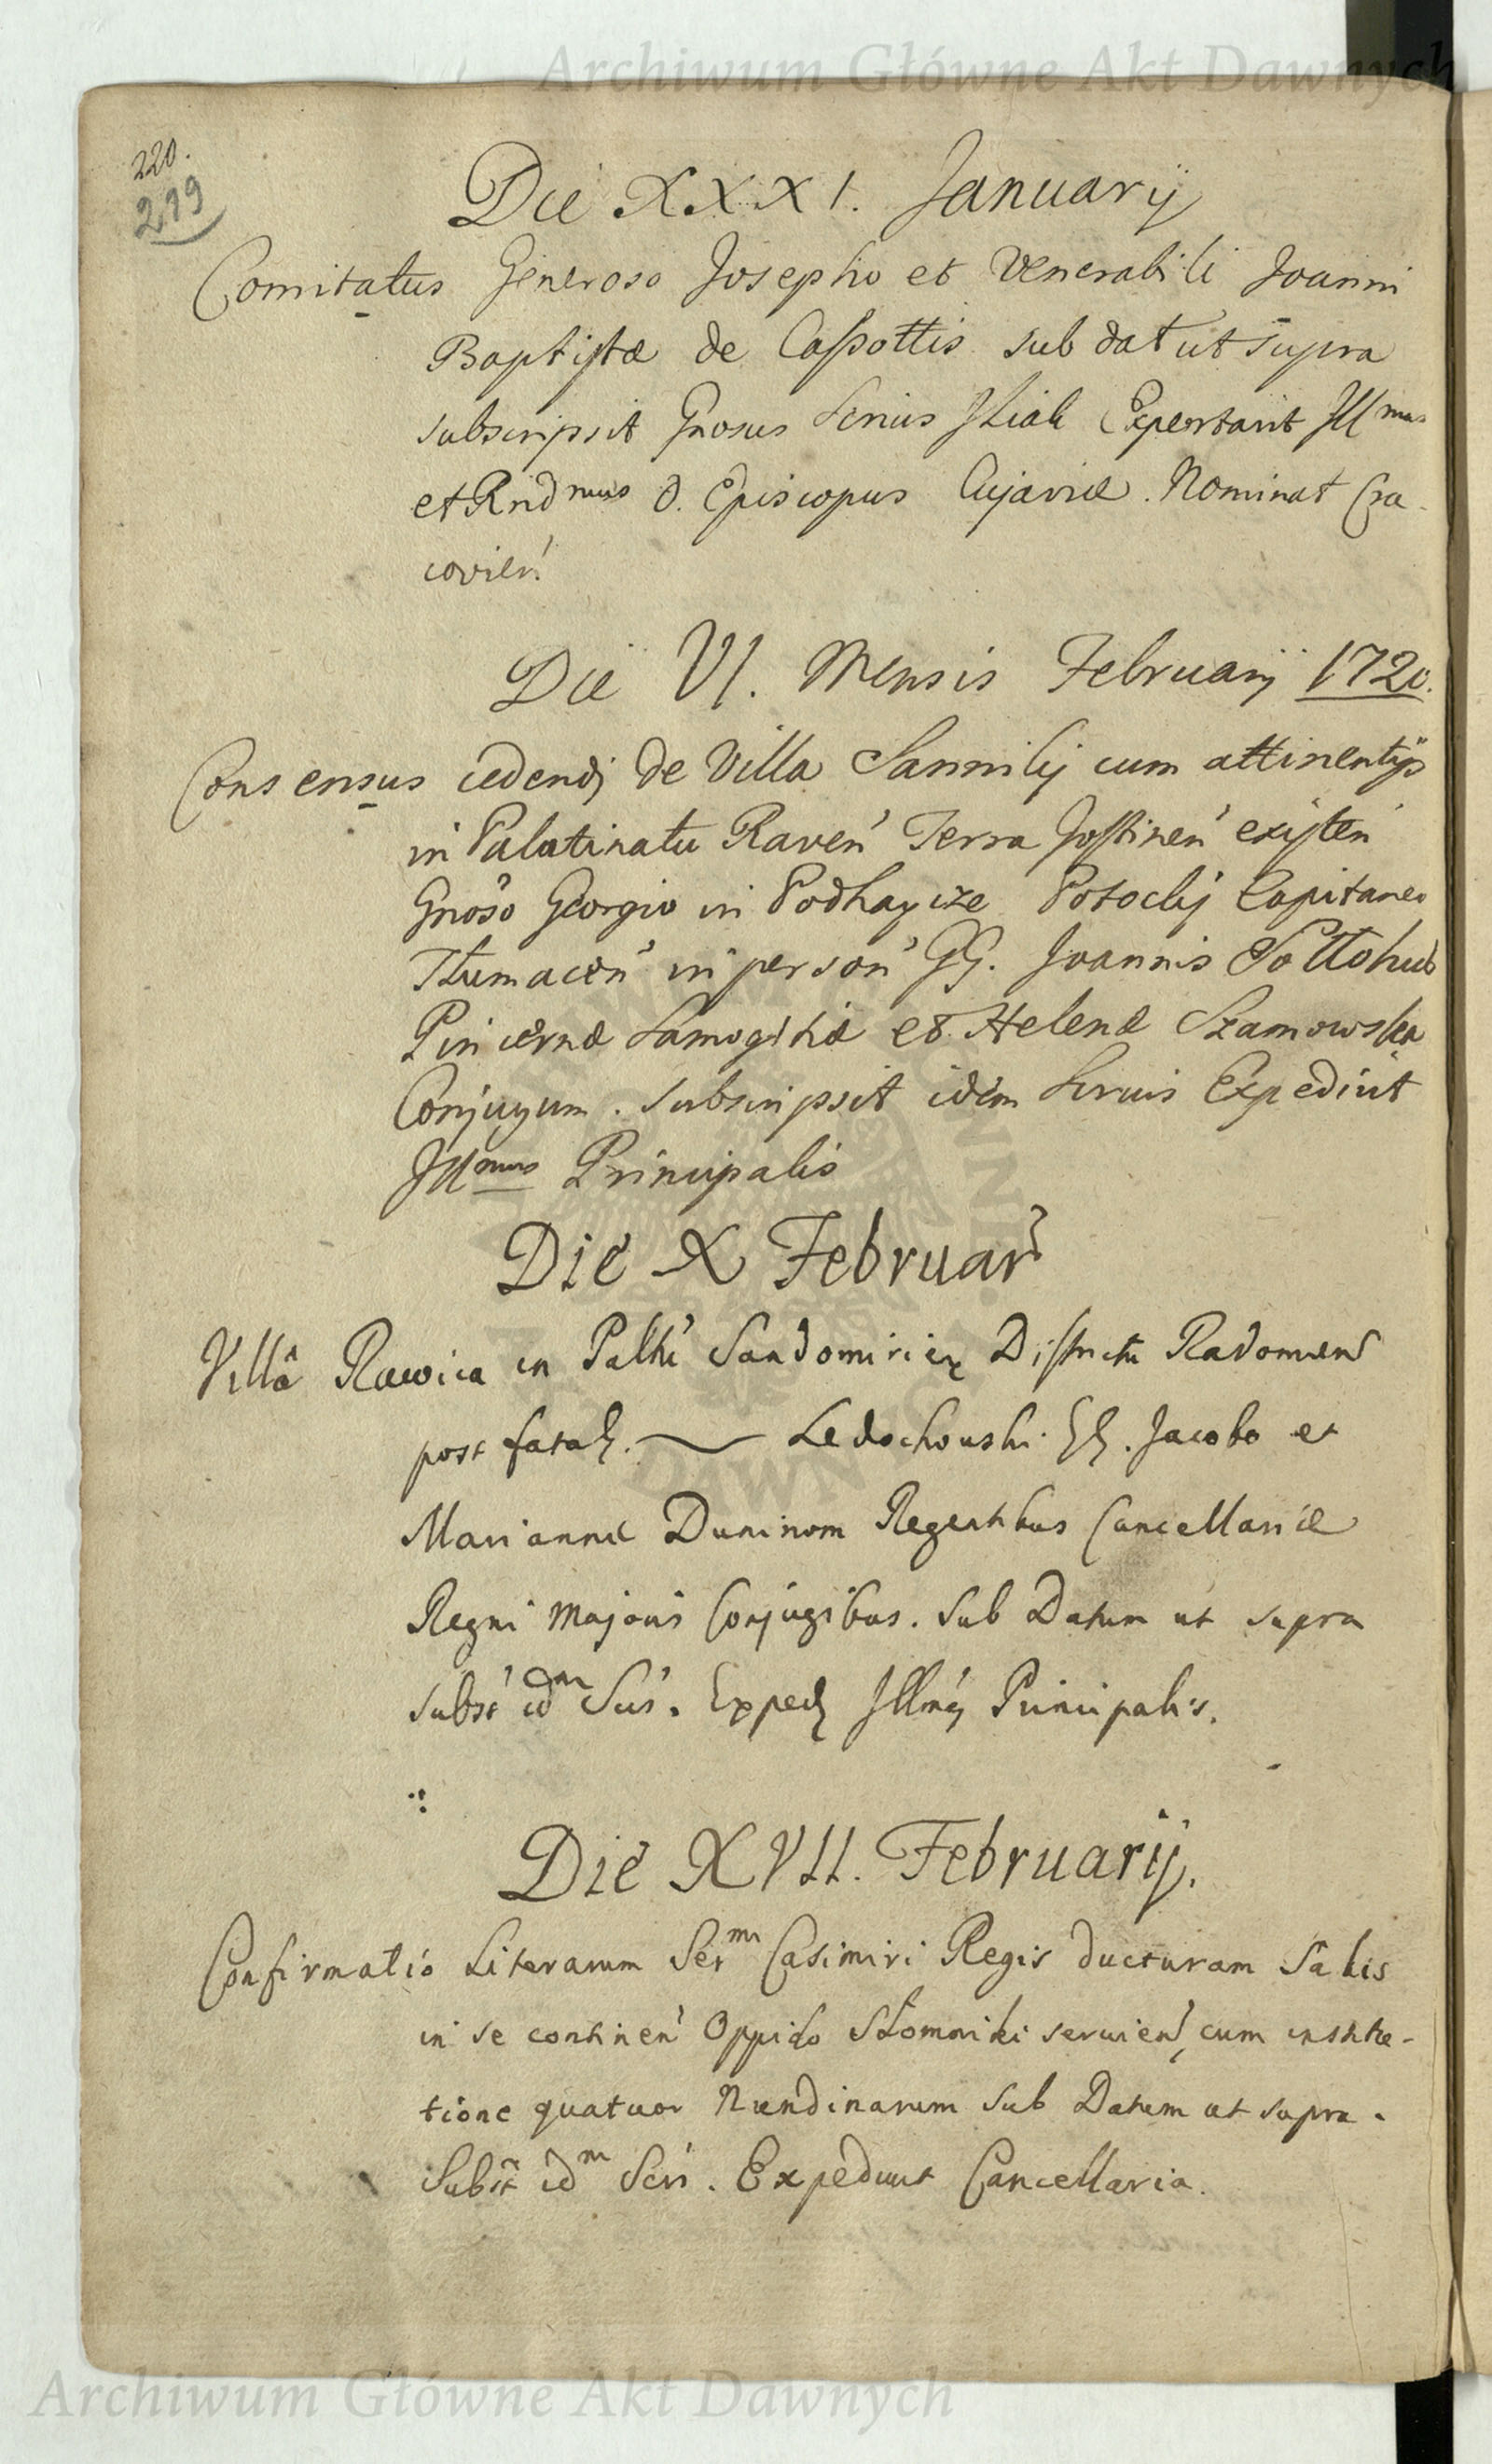 Archiwum Główne Akt Dawnych
220.
219
Die XXXI. Januarij
Comitatus Generoso Josepho et Venerabili Joanni
Baptistæ de Cassottis sub dat ut supra
subscripsit Gnosus
et Rndmus D. Episcopus Cujaviæ. Nominat Cra-
covien'
Die VI. Mensis Februarij 1720.
Consensus cedendj de Villa Sannikj cum attinentijs
in Palatinatu Raven' Terra Gostinen' existen'
Gnoso Georgio in Podhaycze Potockj Capitaneo
Tłumacen' in person' GG. Joannis Sołłohub
Pincernæ Samogitiæ et Helenæ Szamowska
Conjugum. Subscripsit idem Expediit
Jllmus Principalis
Die X Februar'
Villa Rawica in Paltu' Sandomiriæ Districtu Radomien'
post fata Ledochowski. GG. Jacobo et
Mariannæ Duninom Regentibus Cancellariæ
Regni Majoris Conjugibus. Sub Datum ut supra
Subst idm Exped Jllmg Principalis.
Die XVII. Februarij.
Confirmatio Literarum Sermi Casimiri Regis ducturam Salis
in se continen' Oppido Słomniki servien', cum institu-
tione quatuor Nundinarum Sub Datum ut supra.
Subst idm Expediit Cancellaria.
Archiwum Główne Akt Dawnych